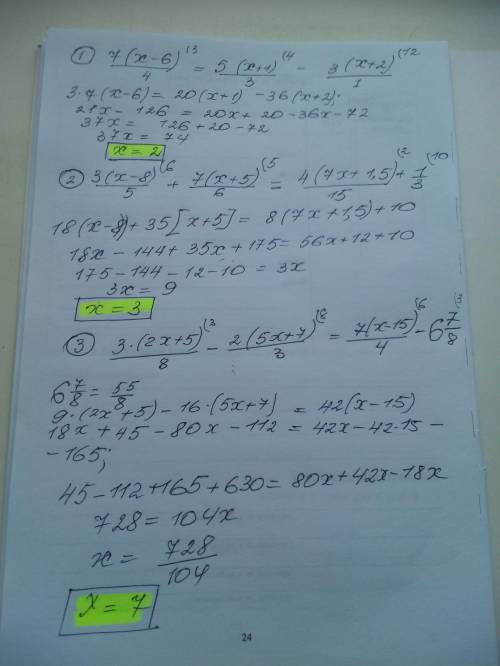 ① 7(x-6)^(3 / 4 = 5(x+1)^(4 / 3 - 3(x+2)^(12 / 1
3·7(x-6) = 20(x+1) - 36(x+2);
21x - 126 = 20x + 20 - 36x - 72
37x = 126 + 20 - 72
37x = 74
x = 2
② 3(x-8)^(6 / 5 + 7(x+5)^(5 / 6 = 4(7x+1,5)^(2 / 15 + 1^(10 / 3
18(x-8) + 35[x+5] = 8(7x+1,5) + 10
18x - 144 + 35x + 175 = 56x + 12 + 10
175 - 144 - 12 - 10 = 3x
3x = 9
x = 3
③ 3·(2x+5)^(3 / 8 - 2(5x+7)^(8 / 3 = 7(x-15)^(6 / 4 - 6 7/8^(3
6 7/8 = 55/8
9·(2x+5) - 16·(5x+7) = 42(x-15)
18x + 45 - 80x - 112 = 42x - 42·15 -
- 165;
45 - 112 + 165 + 630 = 80x + 42x - 18x
728 = 104x
x = 728/104
x = 7
24